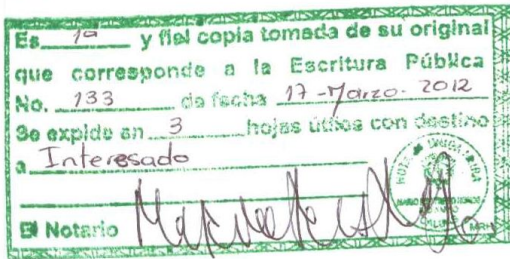 Es 1a y fiel copia tomada de su original
que corresponde a la Escritura Pública
No. 133 de fecha 17-Marzo-2012
Se expide en 3 hojas útiles con destino
a Interesado
El Notario
MRH